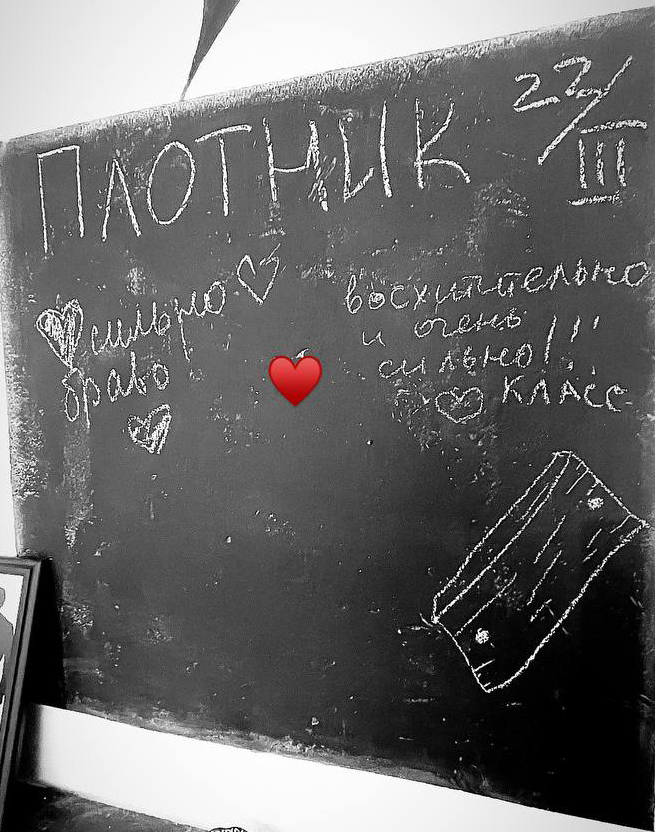 ПЛОТНИК
22/III
сильно
браво
восхитительно
и очень
сильно!!!
КЛАСС